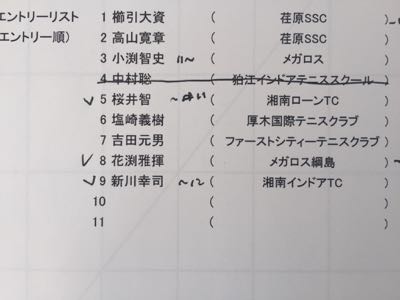 エントリーリスト 1 櫛引大資 ( 荏原SSC )
エントリー順) 2 高山寛章 ( 荏原SSC )
3 小渕智史 11~ ( メガロス )
4 中村聡 ( 狛江インドアテニススクール )
5 桜井智 ( 湘南ローンTC )
6 塩崎義樹 ( 厚木国際テニスクラブ )
7 吉田元男 ( ファーストシティーテニスクラブ )
8 花渕雅揮 ( メガロス綱島 )
9 新川幸司 ~12 ( 湘南インドアTC )
10 ( )
11 ( )